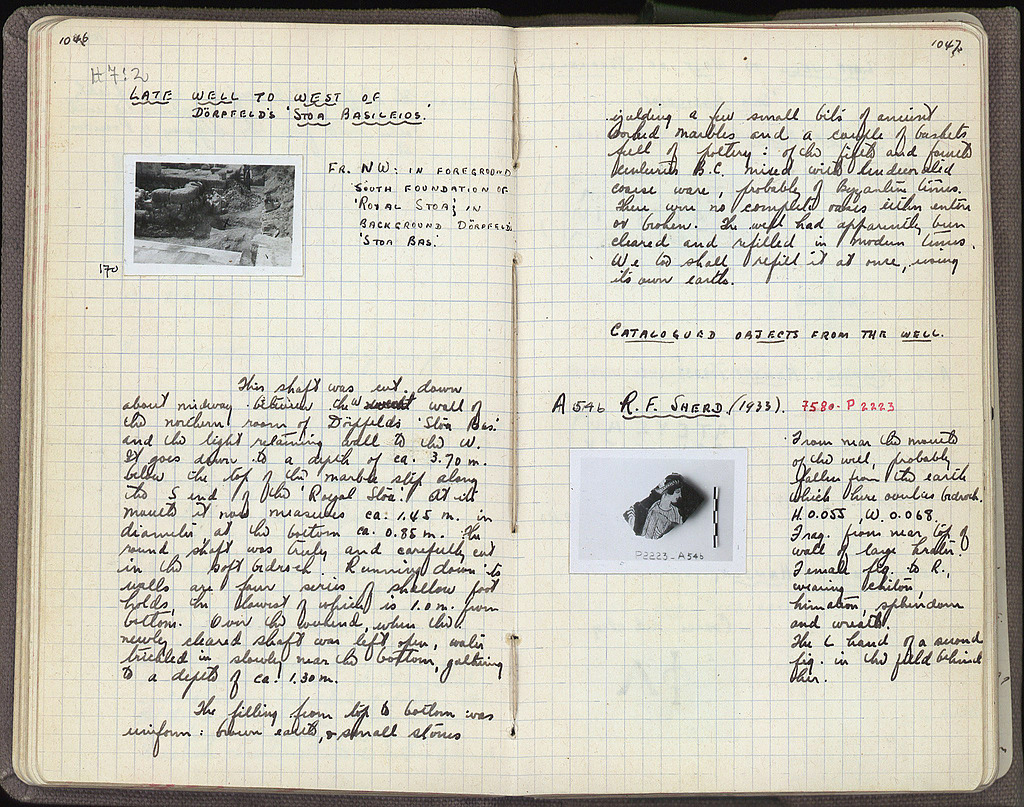 1046
H 7:2
LATE WELL TO WEST OF
DÖRPFELD'S 'STOA BASILEIOS.'
FR. NW: IN FOREGROUND
SOUTH FOUNDATION OF
'ROYAL STOA'; IN
BACKGROUND DÖRPFELD'S
'STOA BAS.'
170
This shaft was cut down
about midway between the W wall of
the northern room of Dörpfelds 'Stoa Bas.'
and the light retaining wall to the W.
It goes down to a depth of ca. 3.70 m.
below the top of the marble step along
the S end of the 'Royal Stoa.' At its
mouth it now measures ca. 1.45 m. in
diameter at the bottom ca. 0.85 m. The
round shaft was truly and carefully cut
in the soft bedrock. Running down its
walls are four series of shallow foot
holds, the lowest of which is 1.0 m. from
bottom. Over the weekend, when the
newly cleared shaft was left open, water
trickled in slowly near the bottom, gathering
to a depth of ca. 1.30 m.
The filling from top to bottom was
uniform: brown earth, & small stones
1047
yielding a few small bits of ancient
worked marbles and a couple of baskets
full of pottery: of the fifth and fourth
centuries B.C. mixed with undecorated
coarse ware, probably of Byzantine times.
There were no complete vases either entire
or broken. The well had apparently been
cleared and refilled in modern times.
We too shall refill it at once, using
its own earth.
CATALOGUED OBJECTS FROM THE WELL.
A 546 R. F. SHERD (1933). 7580- P 2223
From near the mouth
of the well, probably
fallen from the earth
which here overlies bedrock.
H. 0.055, W. 0.068.
Frag. from near top of
wall of large krater.
Female fig. to R.,
wearing chiton,
himation, sphendone
and wreath.
The L hand of a second
fig. in the field behind
her.
P2223-A546